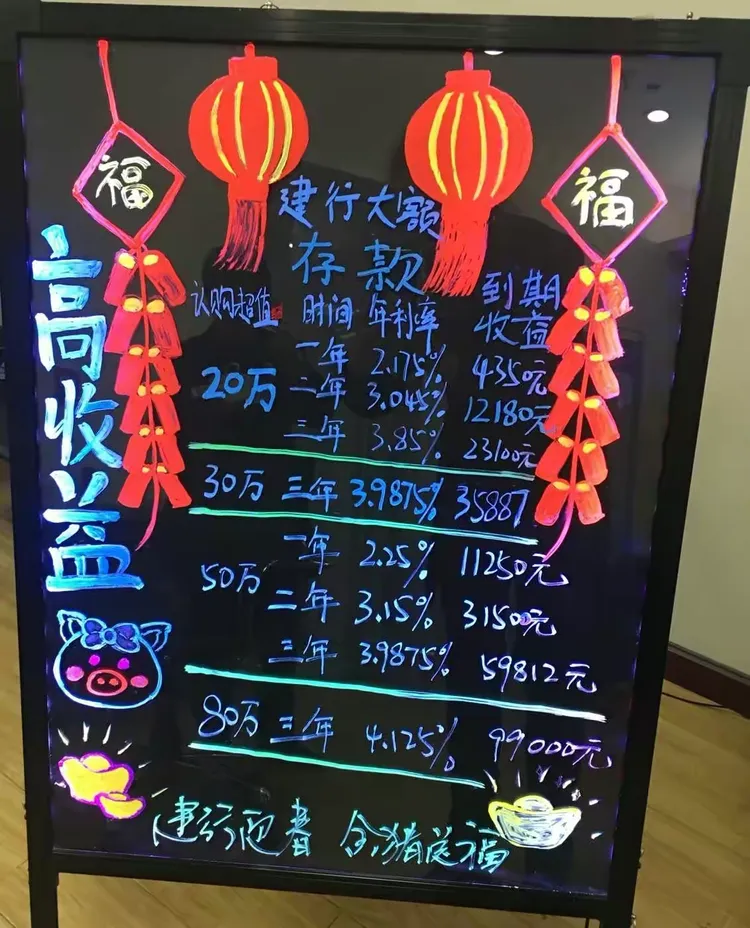 福
福
建行大额
存款
高收益
认购超值 时间 年利率 到期收益
20万 一年 2.175% 4350元
二年 3.045% 12180元
三年 3.85% 23100元
30万 三年 3.9875% 35887
50万 一年 2.25% 11250元
二年 3.15% 31500元
三年 3.9875% 59812元
80万 三年 4.125% 99000元
建行迎春 金猪送福